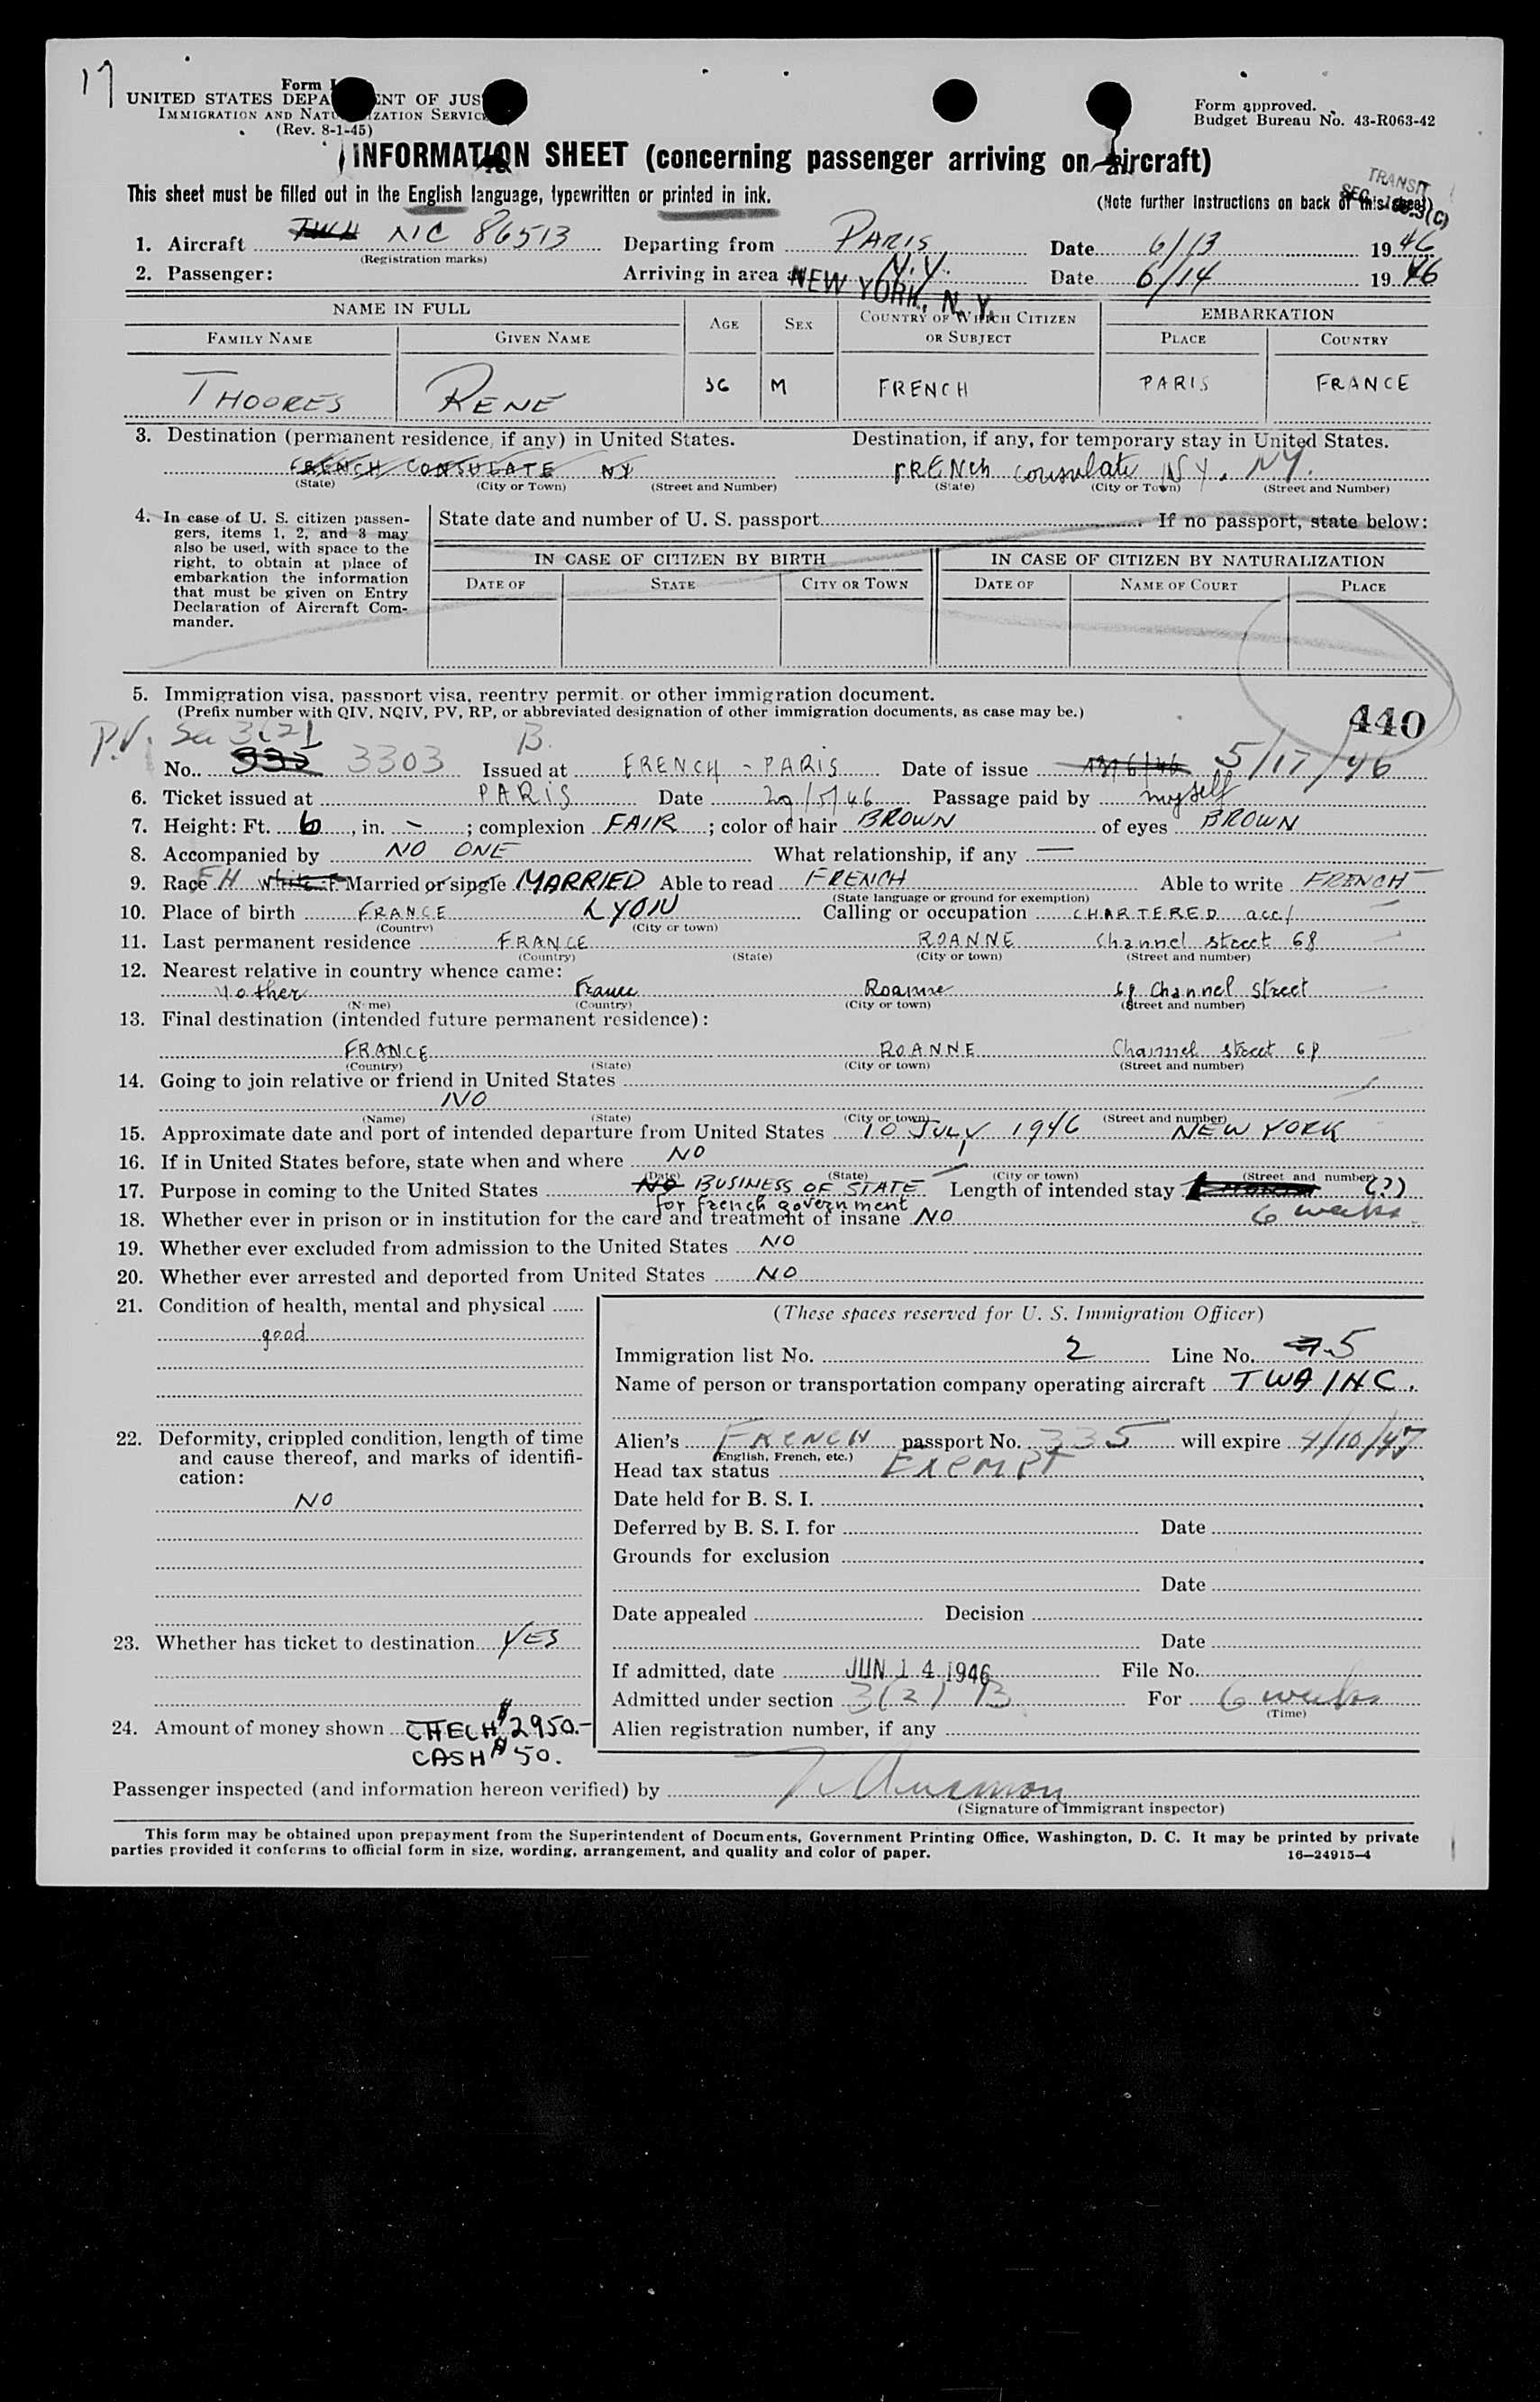 17
Form I
UNITED STATES DEPA ENT OF JUS
IMMIGRATION AND NATU IZATION SERVICE
(Rev. 8-1-45)
Form approved.
Budget Bureau No. 43-R063-42
INFORMATION SHEET (concerning passenger arriving on aircraft)
TRANSIT
This sheet must be filled out in the English language, typewritten or printed in ink.
(Note further instructions on back of this sheet)
SEC. 3(C)
1. Aircraft TWA NC 86513 Departing from PARIS Date 6/13 1946
(Registration marks)
2. Passenger: Arriving in area N.Y. Date 6/14 1946
NEW YORK, N. Y.
NAME IN FULL AGE SEX COUNTRY OF WHICH CITIZEN OR SUBJECT EMBARKATION
FAMILY NAME GIVEN NAME PLACE COUNTRY
THOORES RENE 36 M FRENCH PARIS FRANCE
3. Destination (permanent residence, if any) in United States. Destination, if any, for temporary stay in United States.
FRENCH CONSULATE NY FRENCH consulate NY. NY.
(State) (City or Town) (Street and Number) (State) (City or Town) (Street and Number)
4. In case of U. S. citizen passen-
gers, items 1, 2, and 3 may
also be used, with space to the
right, to obtain at place of
embarkation the information
that must be given on Entry
Declaration of Aircraft Com-
mander.
State date and number of U. S. passport If no passport, state below:
IN CASE OF CITIZEN BY BIRTH IN CASE OF CITIZEN BY NATURALIZATION
DATE OF STATE CITY OR TOWN DATE OF NAME OF COURT PLACE
5. Immigration visa, passport visa, reentry permit, or other immigration document.
(Prefix number with QIV, NQIV, PV, RP, or abbreviated designation of other immigration documents, as case may be.)
440
P.V. B.
No. 335 3303 Issued at FRENCH - PARIS Date of issue 5/17/46
6. Ticket issued at PARIS Date 29/5/46 Passage paid by myself
7. Height: Ft. 6, in. -; complexion FAIR; color of hair BROWN of eyes BROWN
8. Accompanied by NO ONE What relationship, if any —
9. Race FH white Married or single MARRIED Able to read FRENCH Able to write FRENCH
(State language or ground for exemption)
10. Place of birth FRANCE LYON Calling or occupation CHARTERED acc/
(Country) (City or town)
11. Last permanent residence FRANCE ROANNE Channel street 68
(Country) (State) (City or town) (Street and number)
12. Nearest relative in country whence came:
Mother France Roanne 68 Channel Street
(Name) (Country) (City or town) (Street and number)
13. Final destination (intended future permanent residence):
FRANCE ROANNE Channel street 68
(Country) (State) (City or town) (Street and number)
14. Going to join relative or friend in United States
NO
(Name) (State) (City or town) (Street and number)
15. Approximate date and port of intended departure from United States 10 JULY 1946 NEW YORK
16. If in United States before, state when and where NO
(Date) (State) (City or town) (Street and number)
17. Purpose in coming to the United States NO BUSINESS OF STATE Length of intended stay (?)
for french government
18. Whether ever in prison or in institution for the care and treatment of insane NO 6 weeks
19. Whether ever excluded from admission to the United States NO
20. Whether ever arrested and deported from United States NO
21. Condition of health, mental and physical
good
22. Deformity, crippled condition, length of time
and cause thereof, and marks of identifi-
cation:
NO
23. Whether has ticket to destination YES
24. Amount of money shown CHECH $2950.-
CASH $50.
(These spaces reserved for U. S. Immigration Officer)
Immigration list No. 2 Line No. 5
Name of person or transportation company operating aircraft TWA INC.
Alien's FRENCH passport No. 335 will expire 4/10/47
(English, French, etc.)
Head tax status EXEMPT
Date held for B. S. I.
Deferred by B. S. I. for Date
Grounds for exclusion
Date
Date appealed Decision
Date
If admitted, date JUN 14 1946 File No.
Admitted under section 3(2) B For 6 weeks
(Time)
Alien registration number, if any
Passenger inspected (and information hereon verified) by
(Signature of Immigrant inspector)
This form may be obtained upon prepayment from the Superintendent of Documents, Government Printing Office, Washington, D. C. It may be printed by private
parties provided it conforms to official form in size, wording, arrangement, and quality and color of paper.
16—24915-4